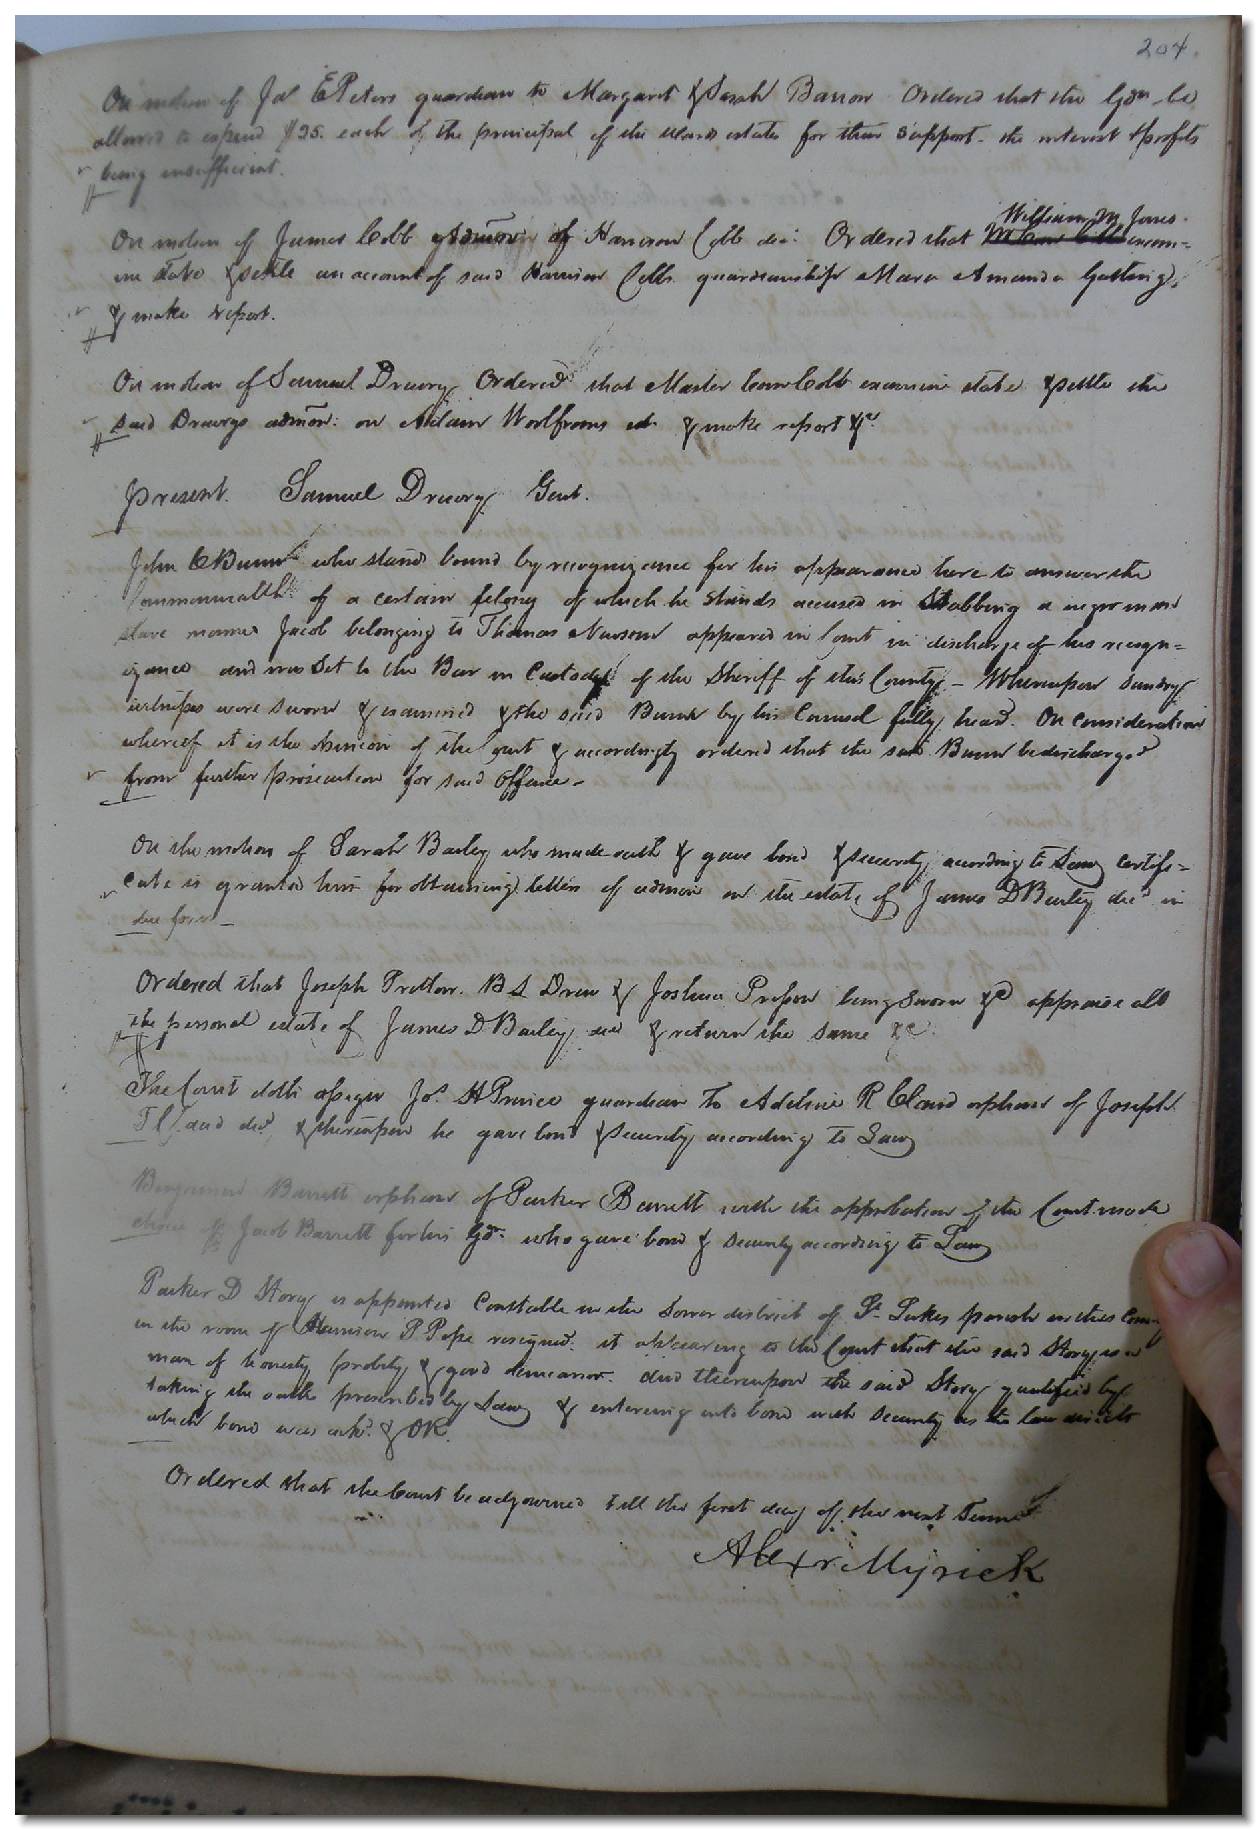 204.
On motion of Jas E Peters guardian to Margaret & Sarah Barrow Ordered that the Gdn be
allowed to expend $25. each of the principal of the wards estates for their support. the interest & profits
being insufficient.
William M Jones
On motion of James Cobb admor of Harrison Cobb dec: Ordered that exam=
ine state & settle an account of said Harrison Cobbs guardianship Amanda
& make report.
On motion of Samuel Drewry Ordered that Master Com Cobb examine state & settle the
said Drewrys admon: on Adam Worlfrooms est & make report &c
present. Samuel Drewry Gent.
John C Bunn who stand bound by recognizance for his appearance here to answer the
Commonwealth of a certain felony of which he stands accused in Stabbing a negro man
slave named Jacob belonging to Thomas Newsom appeared in Court in discharge of his recogn=
izance and was Set to the Bar in Custody of the Sheriff of this County – Whereupon Sundry
witnesses were sworn & examined & the said Bunn by his Counsel fully heard. On consideration
whereof it is the opinion of the Court & accordingly ordered that the said Bunn be discharged
from further prosecution for said offence –
On the motion of Sarah Bailey who made oath & gave bond & security according to Law certifi=
cate is granted him for obtaining letters of admon on the estate of James D Bailey decd in
due form –
Ordered that Joseph Pretlow. B S Drew & Joshua being sworn &c appraise all
the personal estate of James D Bailey decd & return the same &c
The Court doth assign Jos. H Prince guardian to Adeline R Claud orphan of Joseph
T Claud decd, & thereupon he gave bond & security according to Law
Barrett orphan of Parker Barrett with the approbation of the Court made
choice of Jacob Barrett for his Gdn who gave bond & security according to Law
Parker D Story is appointed Constable in the lower district of St. Lukes parish in this County
in the room of Harrison P Pope resigned. it appearing to the Court that the said Story is a
man of honesty probity & good demeanor. And thereupon the said Story qualified by
taking the oaths prescribed by Law & entering into bond with security as the law directs
which bond was ackd. & OR.
Ordered that the Court be adjourned till the first day of the next Term
Alexr. Myrick